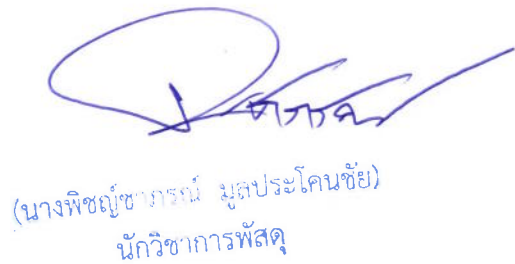 (นางพิชญ์ชาภรณ์ มูลประโคนชัย)
นักวิชาการพัสดุ